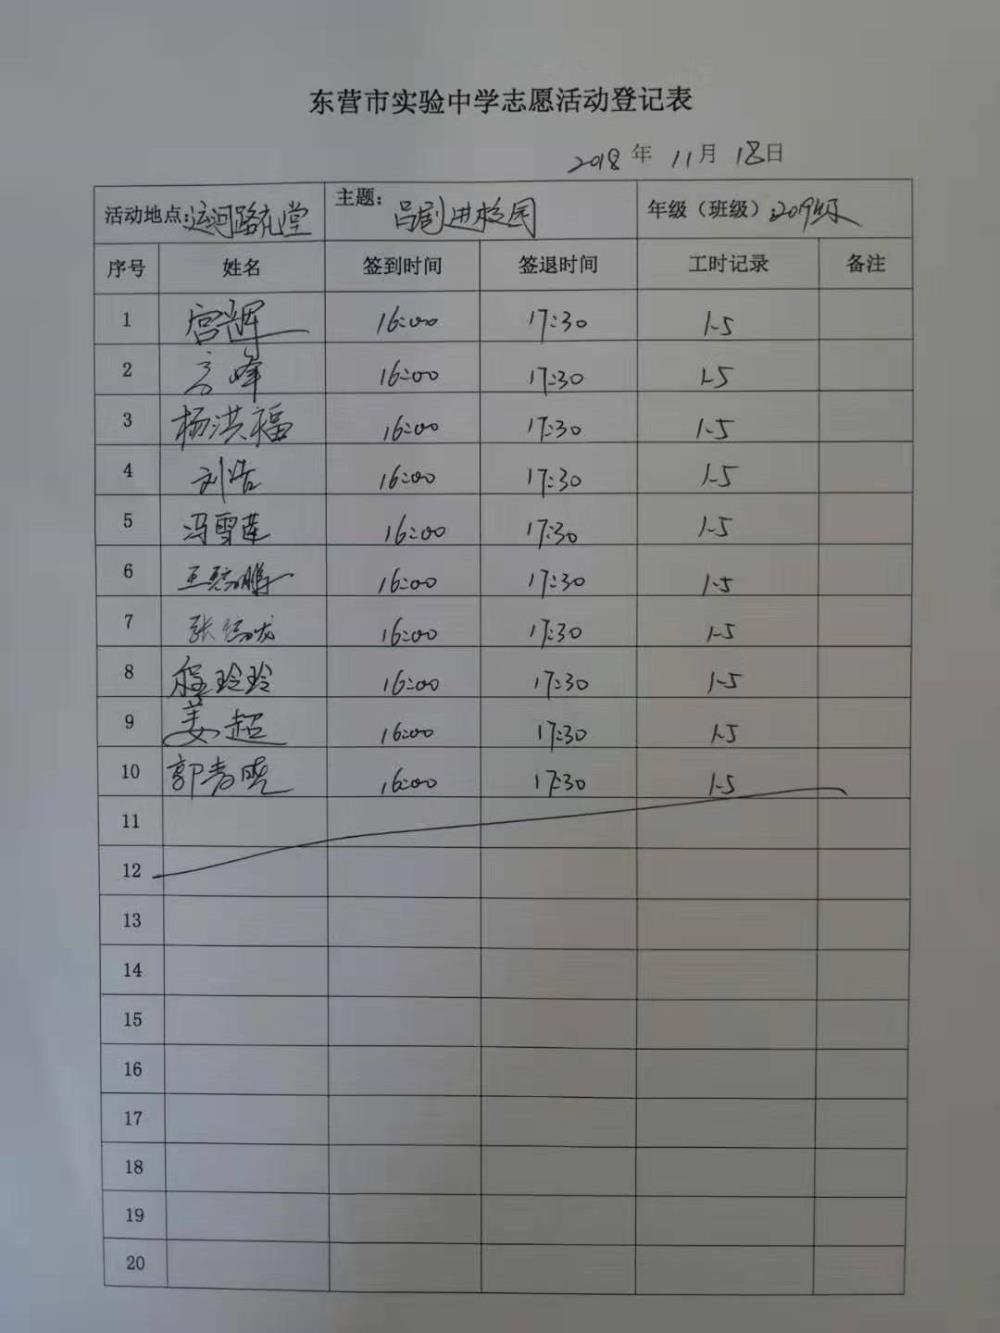 东营市实验中学志愿活动登记表
2018 年 11 月 18 日
活动地点:运河路礼堂 主题: 吕剧进校园 年级（班级）2019级
序号 姓名 签到时间 签退时间 工时记录 备注
1 宫辉 16:00 17:30 1.5
2 方峰 16:00 17:30 1.5
3 杨洪福 16:00 17:30 1.5
4 刘浩 16:00 17:30 1.5
5 冯雪莲 16:00 17:30 1.5
6 王 鹏 16:00 17:30 1.5
7 张 16:00 17:30 1.5
8 程玲玲 16:00 17:30 1.5
9 姜超 16:00 17:30 1.5
10 郭春晓 16:00 17:30 1.5
11
12
13
14
15
16
17
18
19
20